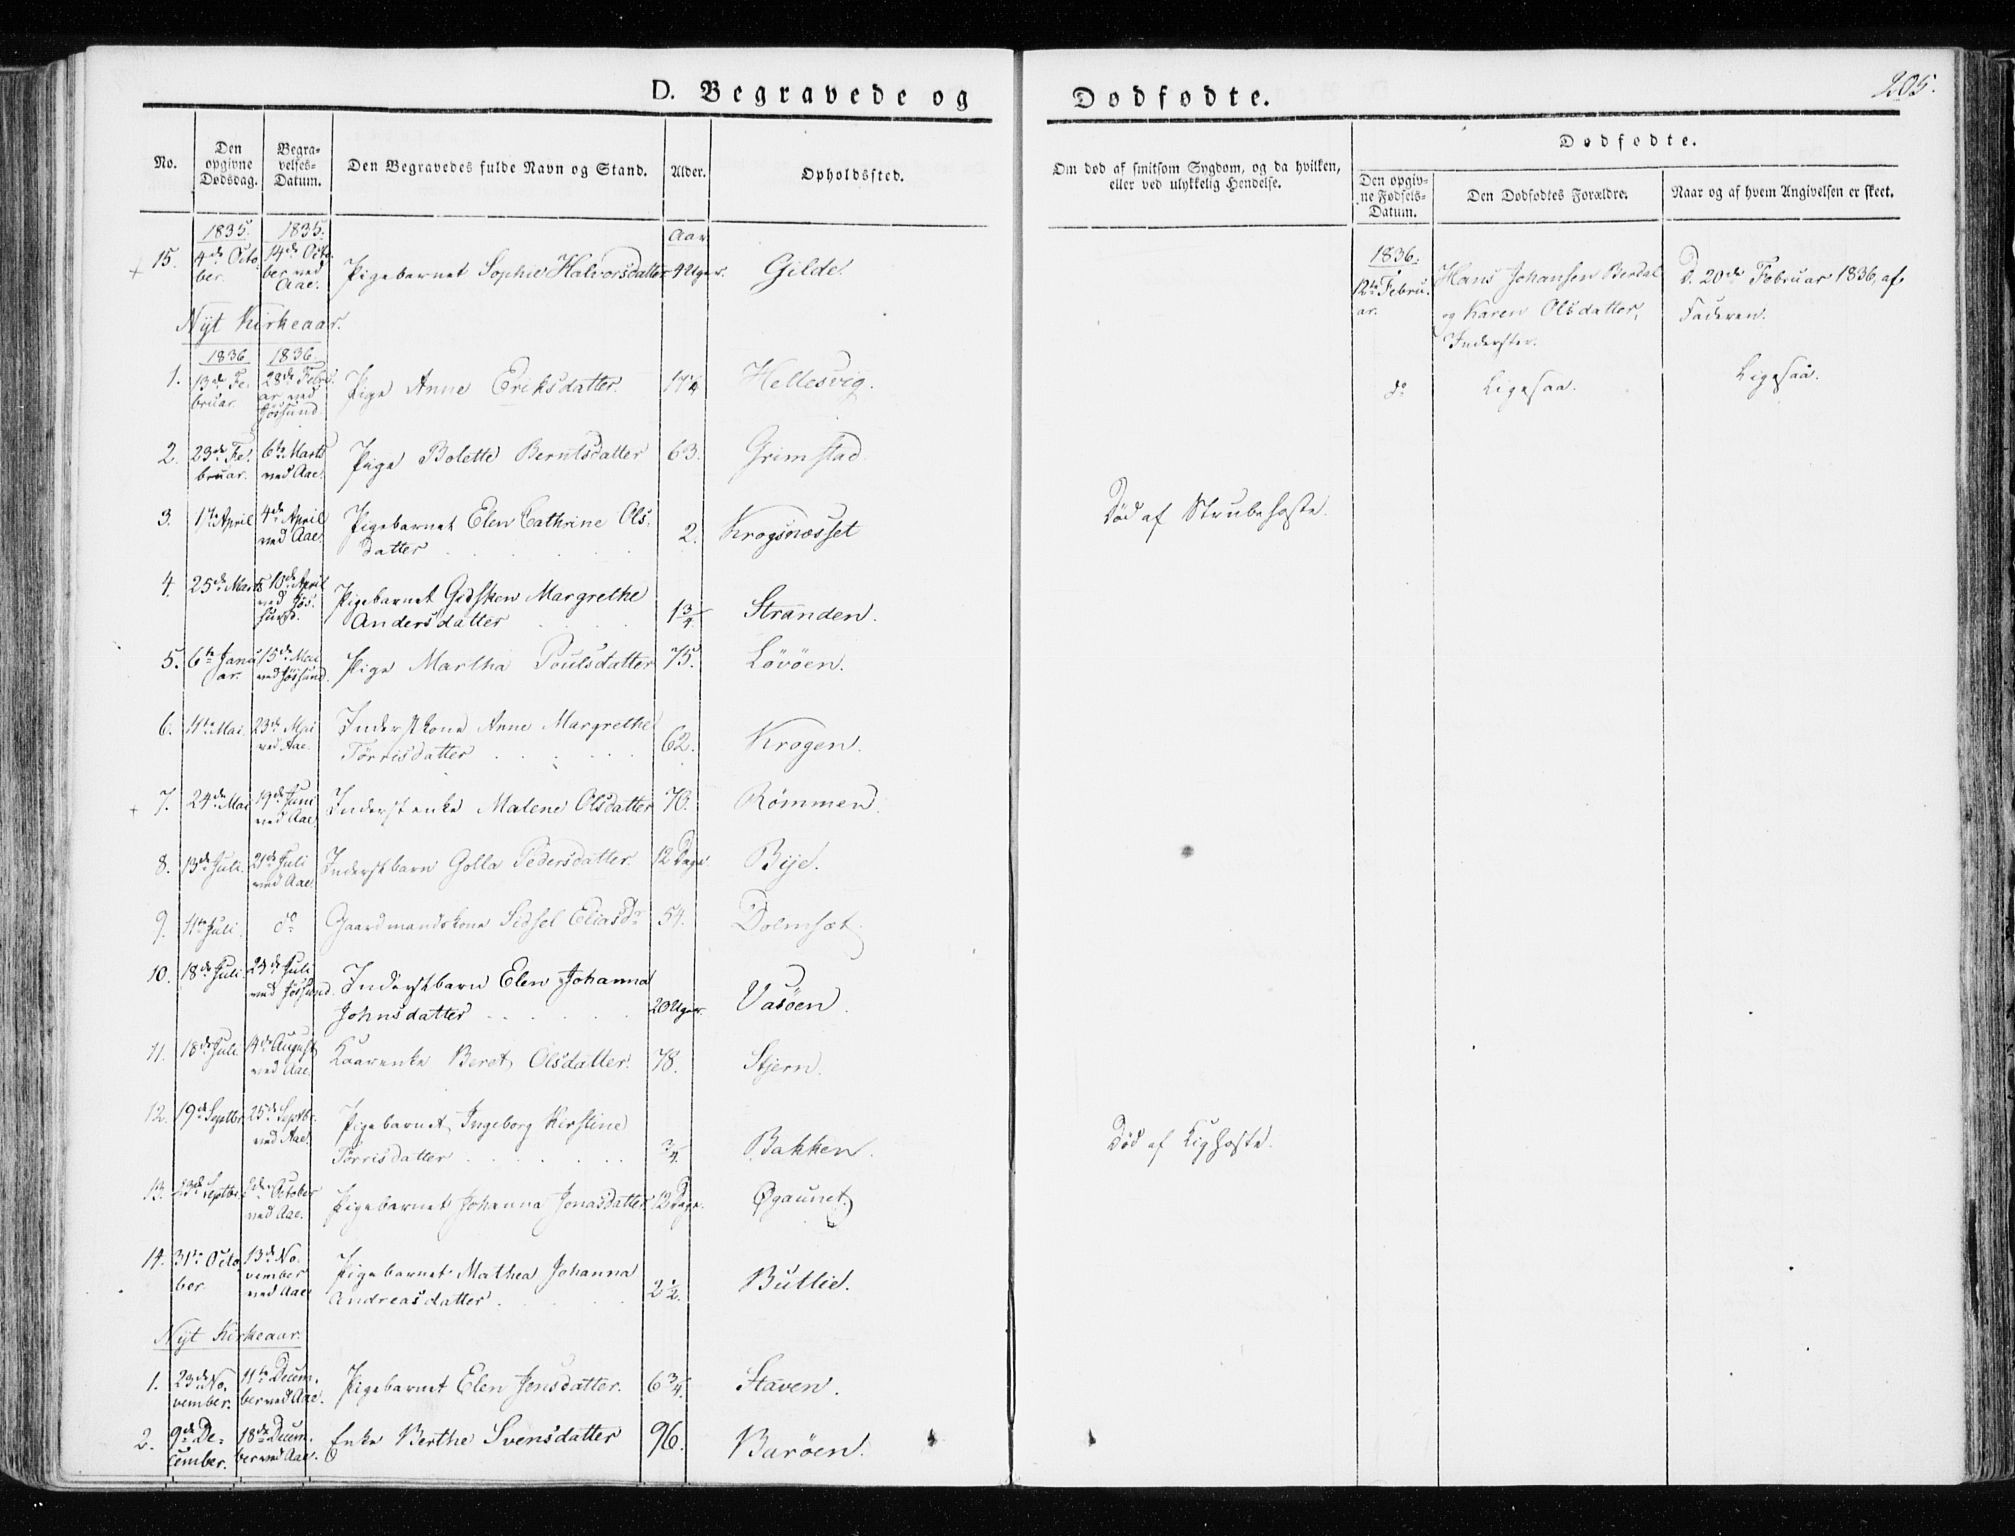 205.
D. Begravede og Dødfødte.
No.
Den opgivne Dødsdag.
Begravelses-Datum.
Den Begravedes fulde Navn og Stand.
Alder.
Opholdssted.
Om død af smitsom Sygdom, og da hvilken,
eller ved ulykkelig Hendelse.
Dødfødte.
Den opgivne Fødsels-Datum.
Den Dødfødtes Forældre.
Naar og af hvem Angivelsen er skeet.
1835. 1835. Aar
15. 4de October. 14de October ved Aae. Pigebarnet Sophie Halvorsdatter 4 Uger. Gilde.
1836. 12te Februar. Hans Johansen Berdal og Karen Olsdatter, Inderster. D. 20de Februar 1836, af Faderen.
Nyt Kirkeaar.
1836 1836.
1. 13de Februar. 28de Februar ved Jøssund. Pige Anne Eriksdatter. 17¼ Hellesvig.
do Ligesaa. Ligesaa.
2. 23de Februar. 6te Marts ved Aae. Pige Bolette Berntsdatter 63. Grimstad.
3. 1ste April 4de April ved Aae. Pigebarnet Elen Cathrine Olsdatter 2. Krogsnæsset Død af Strubehoste.
4. 25de Marts 10de April ved Jøssund. Pigebarnet Gidsken Margrethe Andersdatter 1¾ Stranden.
5. 6te Januar. 15de Mai ved Jøssund. Pige Martha Poulsdatter 75. Løvøen.
6. 4te Mai. 23de Mai ved Aae. Inderstkone Anne Margrethe Tørrisdatter 62. Krogen.
7. 24de Mai 19de Juni ved Aae. Inderstenke Malene Olsdatter 70. Rømmen.
8. 13de Juli. 21de Juli ved Aae. Inderstbarn Golla Pedersdatter. 12 Dage. Bije.
9. 11te Juli. do Gaardmandskone Sidsel Eliasdr 54. Dolmsæt.
10. 18de Juli 24de Juli ved Jøssund. Inderstbarn Elen Johanna Johnsdatter 20 Uger. Vasøen.
11. 18de Juli 14de August ved Aae. Kaarenke Beret Olsdatter. 78. Stjern.
12. 19de Septbr. 25de Septbr. ved Aae. Pigebarnet Ingeborg Kirstine Tørrisdatter ¾. Bakken. Død af Kighoste.
13. 23de Septbr. 2den October ved Aae. Pigebarnet Johanna Jonasdatter 12 Dage. Øgaunet.
14. 31te October. 13de November ved Aae. Pigebarnet Mathea Johanna Andreasdatter. 2½. Butlie.
Nyt Kirkeaar.
1. 23de November. 11te December ved Aae. Pigebarnet Elen Jensdatter. 6¾. Staven.
2. 9de December. 18de December ved Aae. Enke Berthe Svensdatter 96. Barøen.